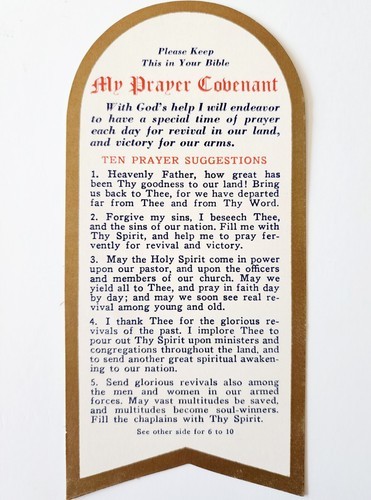 Please Keep
This in Your Bible
My Prayer Covenant
With God's help I will endeavor
to have a special time of prayer
each day for revival in our land,
and victory for our arms.
TEN PRAYER SUGGESTIONS
1. Heavenly Father, how great has
been Thy goodness to our land! Bring
us back to Thee, for we have departed
far from Thee and from Thy Word.
2. Forgive my sins, I beseech Thee,
and the sins of our nation. Fill me with
Thy Spirit, and help me to pray fer-
vently for revival and victory.
3. May the Holy Spirit come in power
upon our pastor, and upon the officers
and members of our church. May we
yield all to Thee, and pray in faith day
by day; and may we soon see real re-
vival among young and old.
4. I thank Thee for the glorious re-
vivals of the past. I implore Thee to
pour out Thy Spirit upon ministers and
congregations throughout the land, and
to send another great spiritual awaken-
ing to our nation.
5. Send glorious revivals also among
the men and women in our armed
forces. May vast multitudes be saved,
and multitudes become soul-winners.
Fill the chaplains with Thy Spirit.
See other side for 6 to 10